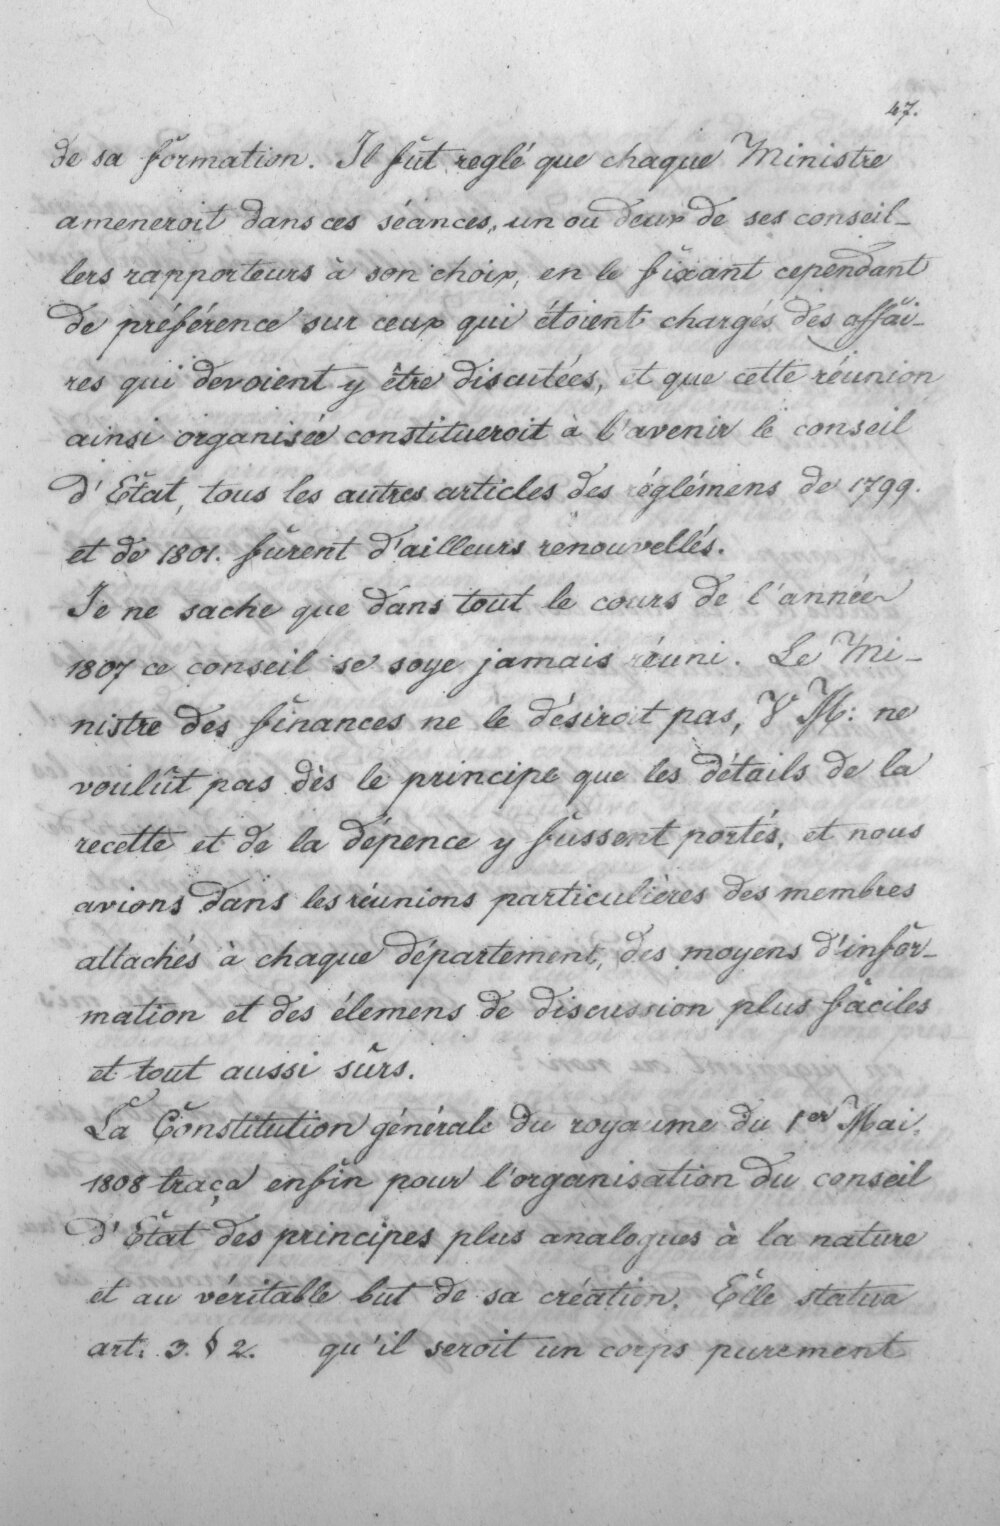 47.
de sa formation. Il fût reglé que chaque Ministre
ameneroit dans ces séances, un ou deux de ses conseil-
lers rapporteurs à son choix, en le fixant cependant
de préférence sur ceux qui étoient chargés des affai-
res qui devoient y être discutées, et que cette réunion
ainsi organisée constitueroit à l'avenir le conseil
d'Etat, tous les autres articles des réglémens de 1799.
et de 1801. fûrent d'ailleurs renouvellés.
Je ne sache que dans tout le cours de l'année
1807 ce conseil se soye jamais réuni. Le Mi-
nistre des finances ne le désiroit pas, V M: ne
voulût pas dès le principe que les détails de la
recette et de la dépence y fussent portés, et nous
avions dans les réunions particulières des membres
attachés à chaque département, des moyens d'infor-
mation et des élemens de discussion plus faciles
et tout aussi sûrs.
La Constitution générale du royaume du 1er Mai.
1808 traça enfin pour l'organisation du conseil
d'Etat des principes plus analogues à la nature
et au véritable but de sa création. Elle statua
art. 3. § 2. qu'il seroit un corps purement